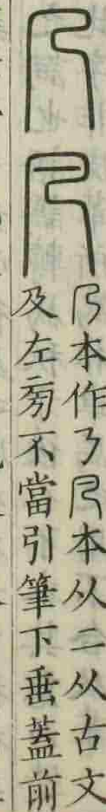 乃凡
乃本作𠄎凡本从二从古文
及左旁不當引筆下垂蓋前